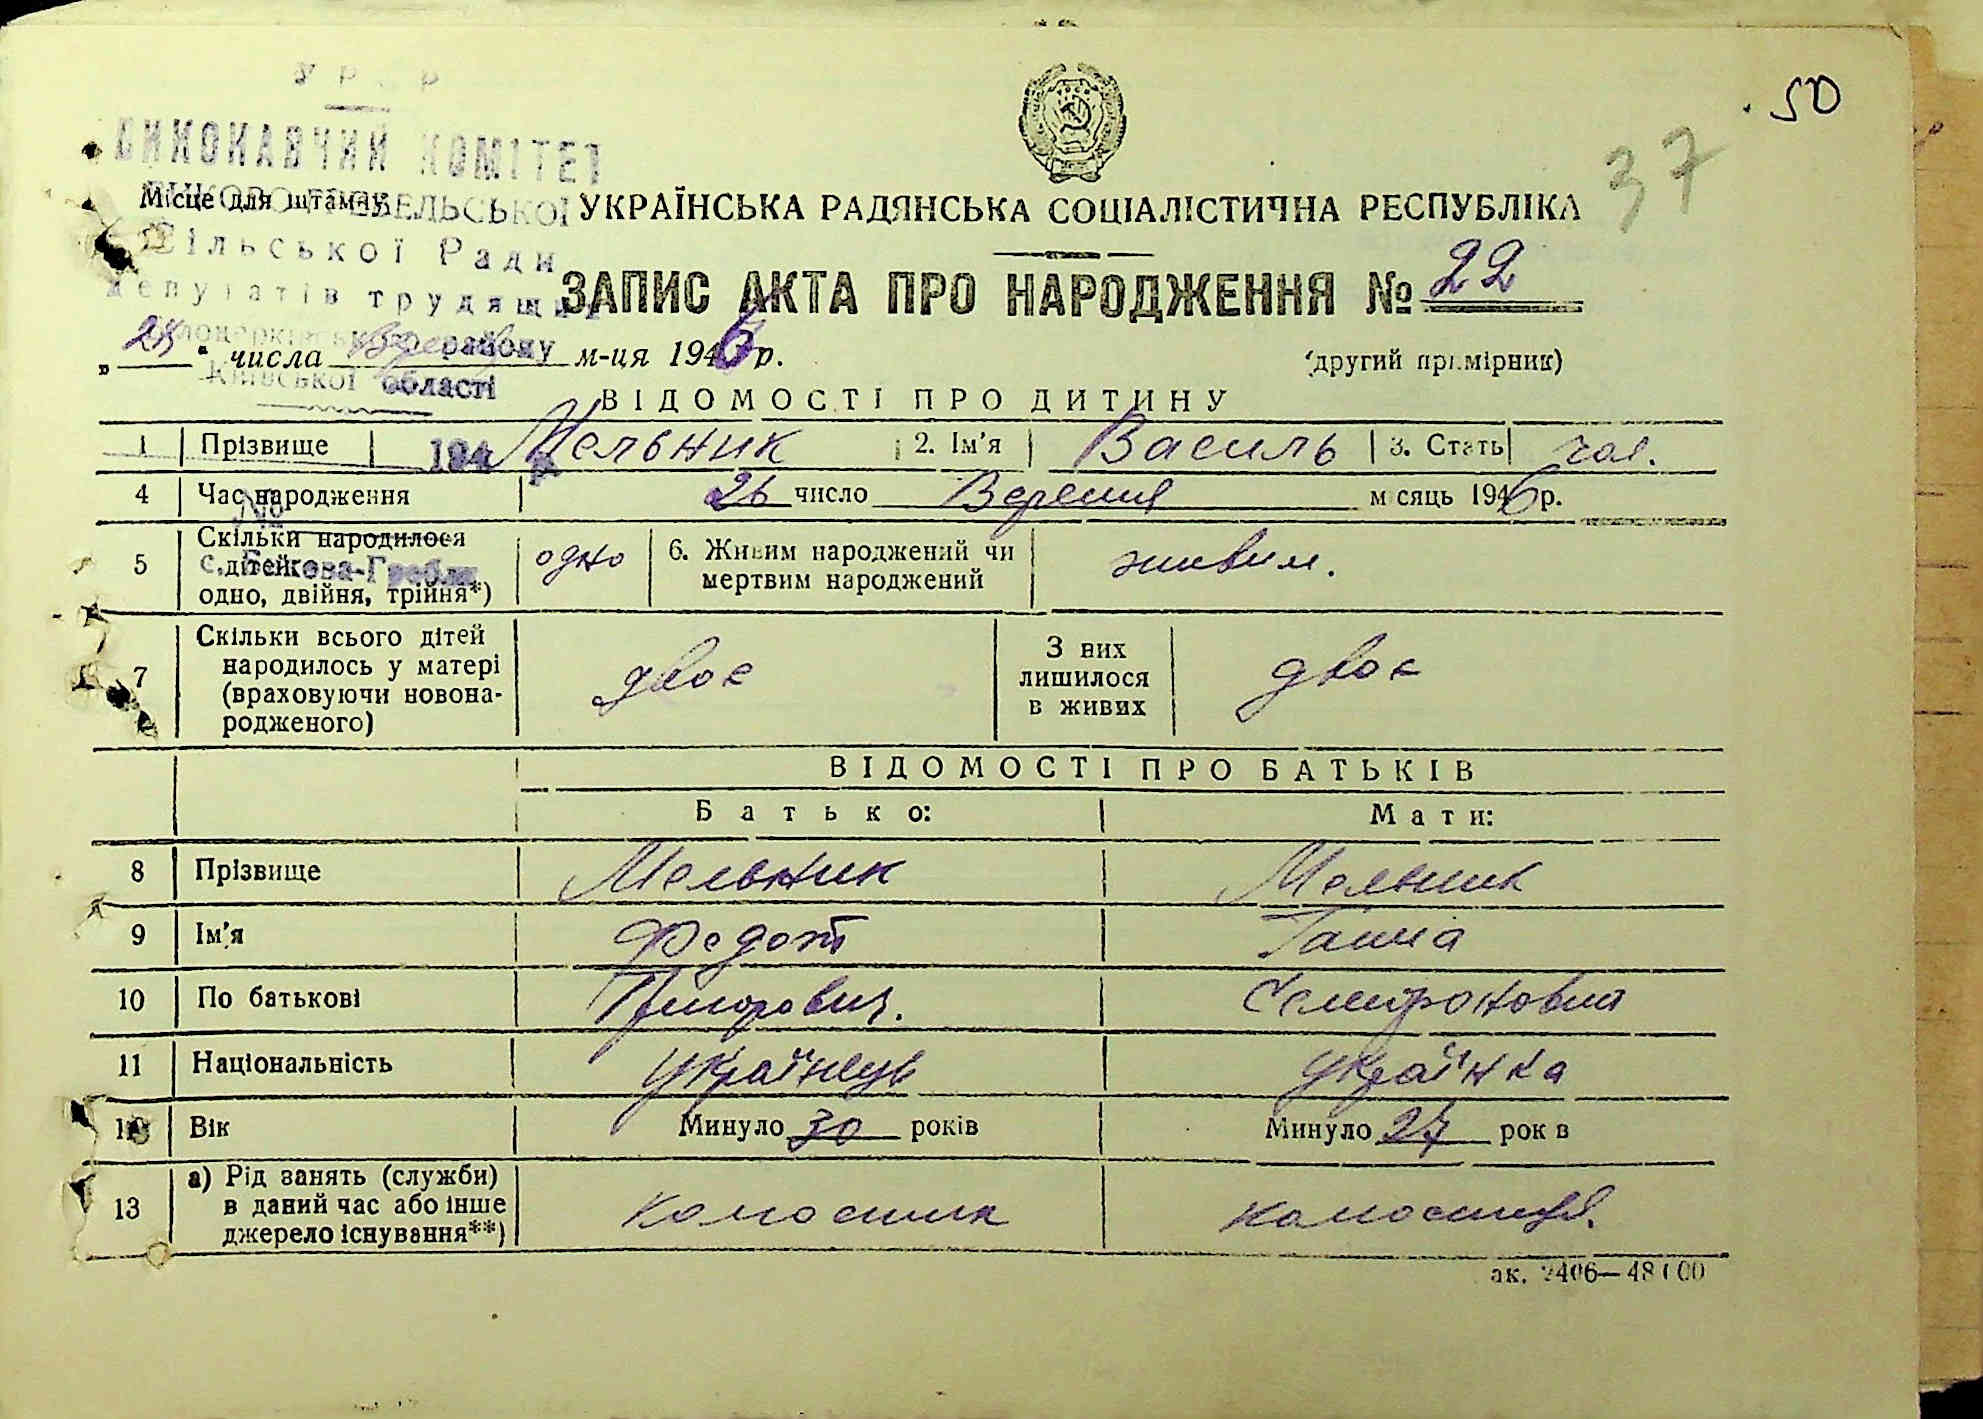 УРСР
ВИКОНАВЧИЙ КОМІТЕТ
БИКОВО-ГРЕБЕЛЬСЬКОЇ
Сільської Ради
депутатів трудящих
Білоцерківського району
Київської області
194
№
с. Бикова-Гребля
50
37
Місце для штампу
УКРАЇНСЬКА РАДЯНСЬКА СОЦІАЛІСТИЧНА РЕСПУБЛІКА
ЗАПИС АКТА ПРО НАРОДЖЕННЯ № 22
„28“ числа Вересня м-ця 1946 р.
(другий примірник)
ВІДОМОСТІ ПРО ДИТИНУ
1 Прізвище Мельник 2. Ім'я Василь 3. Стать чол.
4 Час народження 26 число Вересня місяць 1946 р.
5 Скільки народилося дітей: одно, двійня, трійня*) одно 6. Живим народжений чи мертвим народжений живим.
7 Скільки всього дітей народилось у матері (враховуючи новонародженого) двоє З них лишилося в живих двоє
ВІДОМОСТІ ПРО БАТЬКІВ
Батько: Мати:
8 Прізвище Мельник Мельник
9 Ім'я Федот Ганна
10 По батькові Семроновна
11 Національність українець українка
12 Вік Минуло 30 років Минуло 27 років
13 а) Рід занять (служби) в даний час або інше джерело існування**) колгосник колгосниця.
Зак. 2406—48000